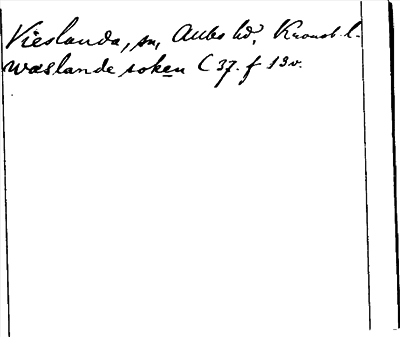 Vieslanda, sn, Albo hd, Kronob. l.
wæslande soken C 37. f 13v.